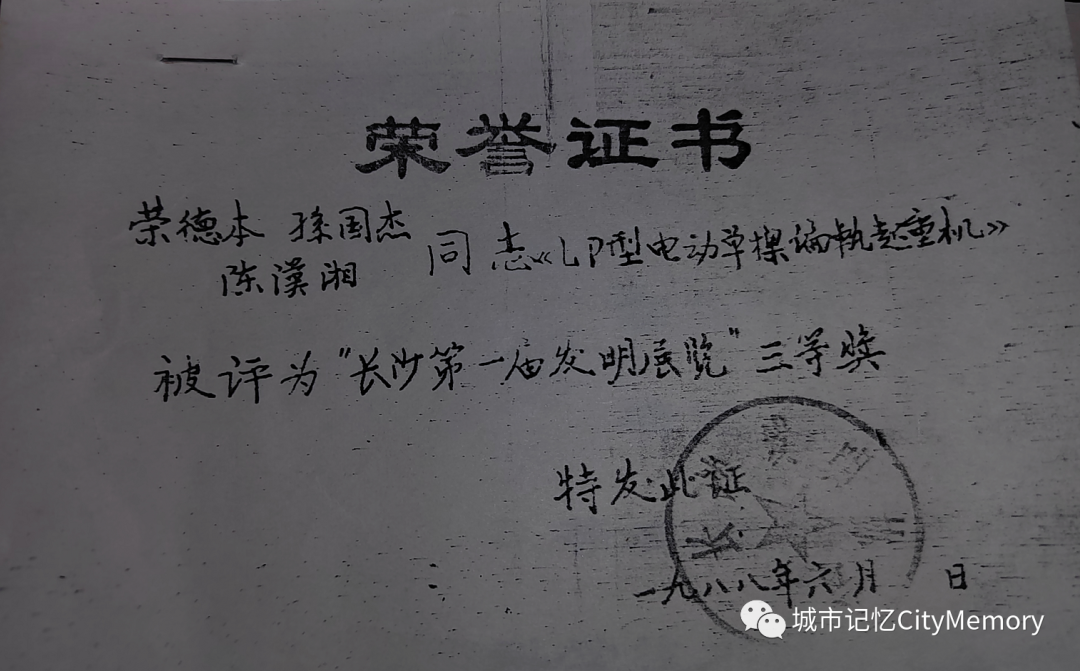 荣誉证书
荣德本 孫国杰
陈漢湘
同志《LP型电动单梁偏軌起重机》
被评为"长沙第一届发明展览"三等奖
特发此证
一九八八年六月 日
城市记忆CityMemory